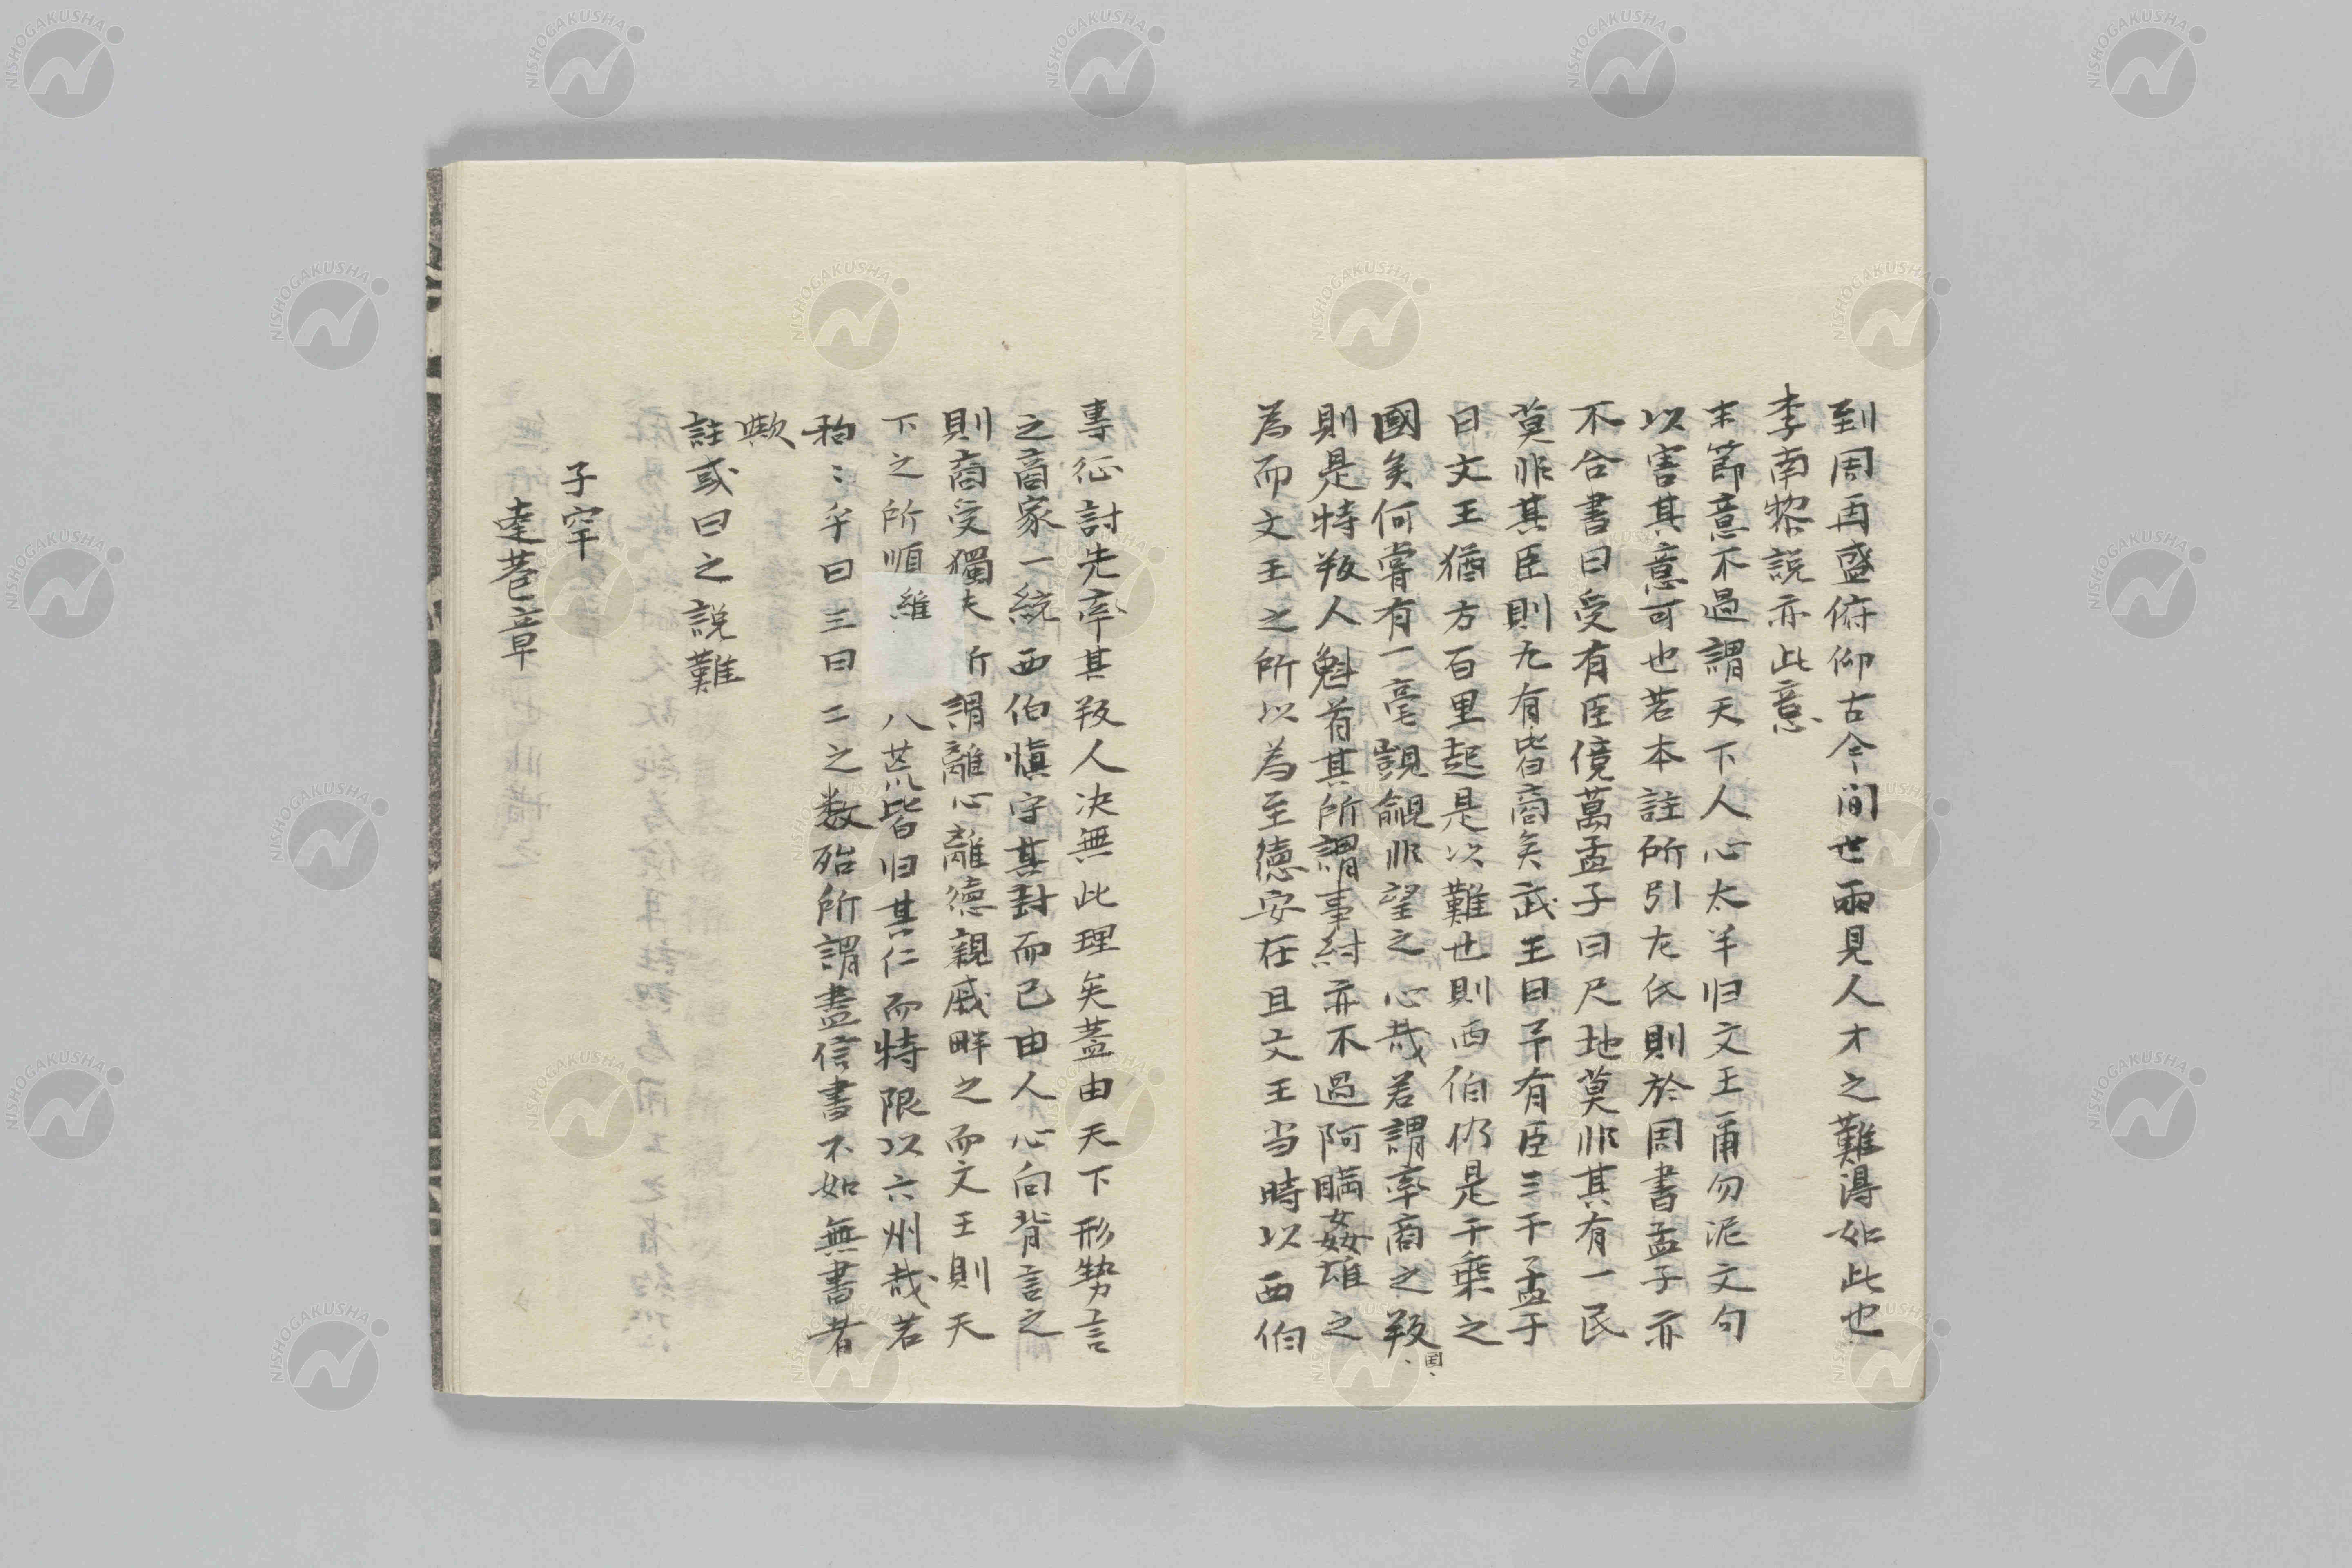 到周再盛俯仰古今間世両見人才之難得如此也
李南黎説亦此意
末節意不過謂天下人心太半归文王爾勿泥文句
以害其意可也若本註所引左氏則於周書孟子亦
不合書曰受有臣億萬孟子曰尺地莫非其有一民
莫非其臣則九有皆商矣武王曰予有臣三千孟子
曰文王猶方百里起是以難也則西伯仍是千乗之
國矣何嘗有一毫覬覦非望之心哉若謂率商之叛國
則是特叛人魁首其所謂事紂亦不過阿瞞姦雄之
為而文王之所以為至徳安在且文王当時以西伯
専征討先率其叛人决無此理矣蓋由天下形勢言
之商家一統西伯慎守其封而已由人心向背言之
則商受獨夫所謂離心離徳親戚畔之而文王則天
下之所順維八荒皆归其仁而特限以六州哉若
粘〻乎曰三曰二之数殆所謂盡信書不如無書者
歟
註或曰之説難
子罕
達巷章
NISHOGAKUSHA